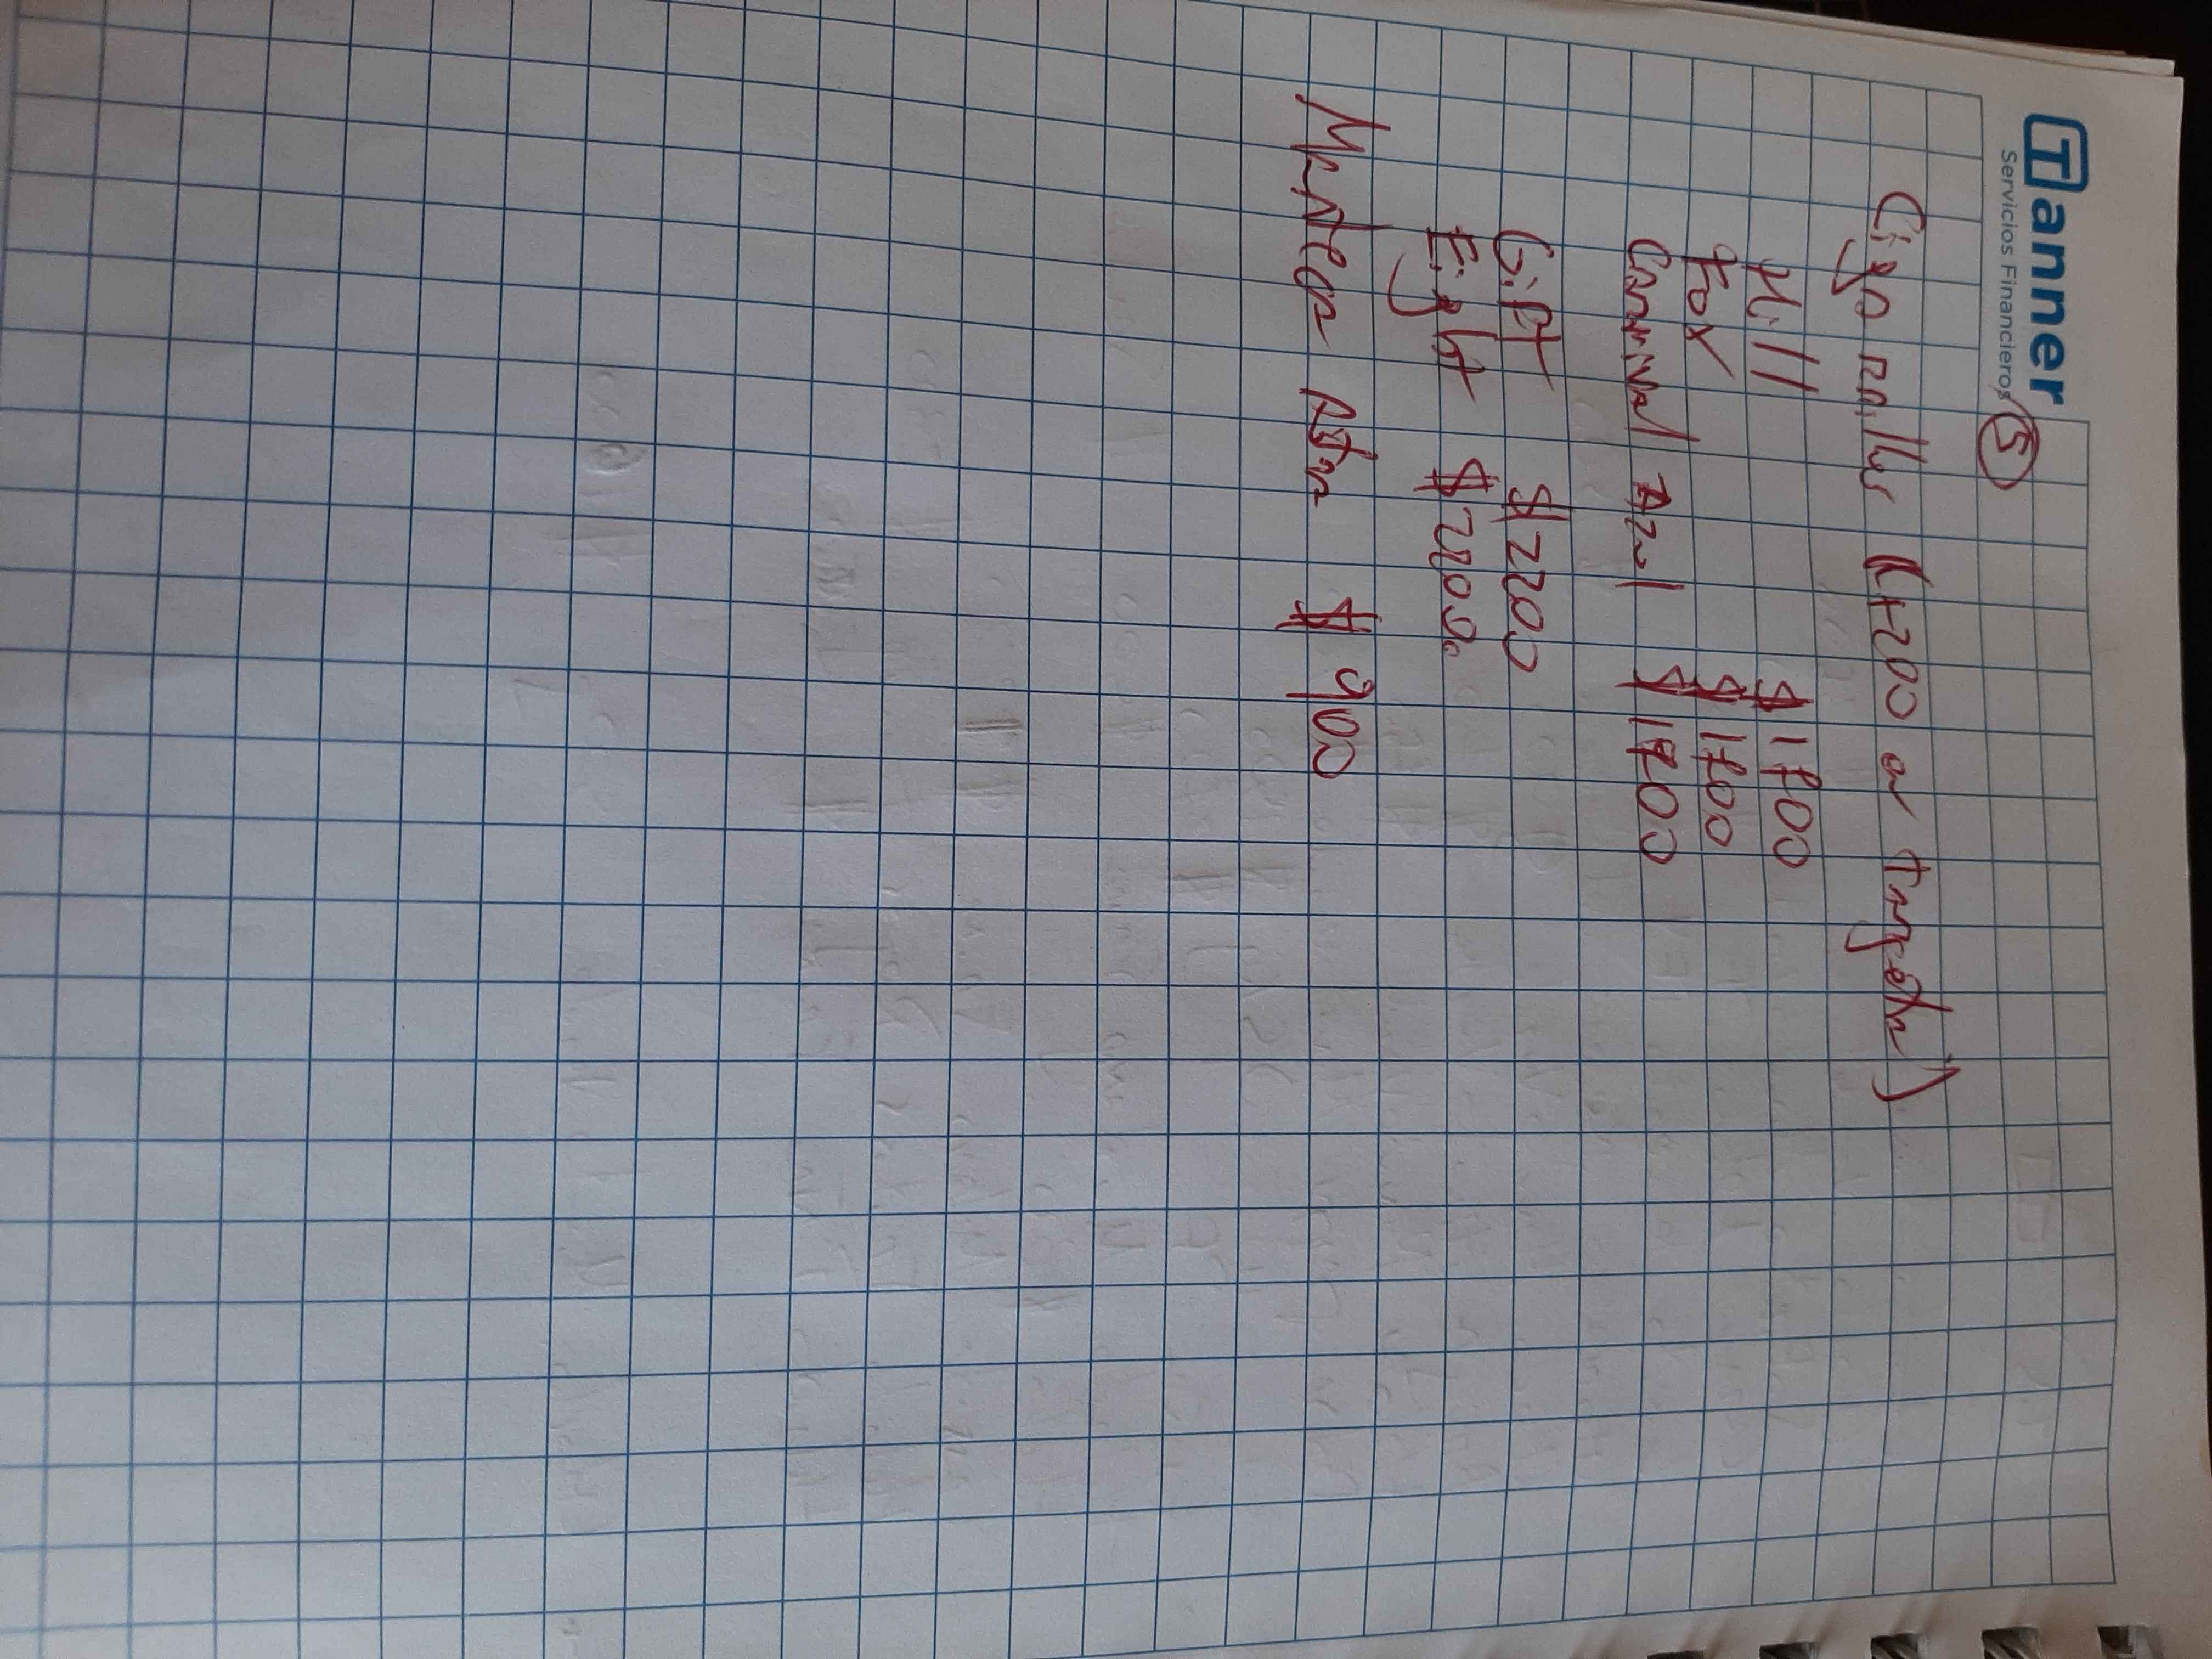 Tanner
Servicios Financieros
5
Cigarrillos (+200 con tarjeta)
Hill $1700
Fox $1700
Carnival Azul $1700
Gift $2200
Eight $2200.
Manteca Astra $900